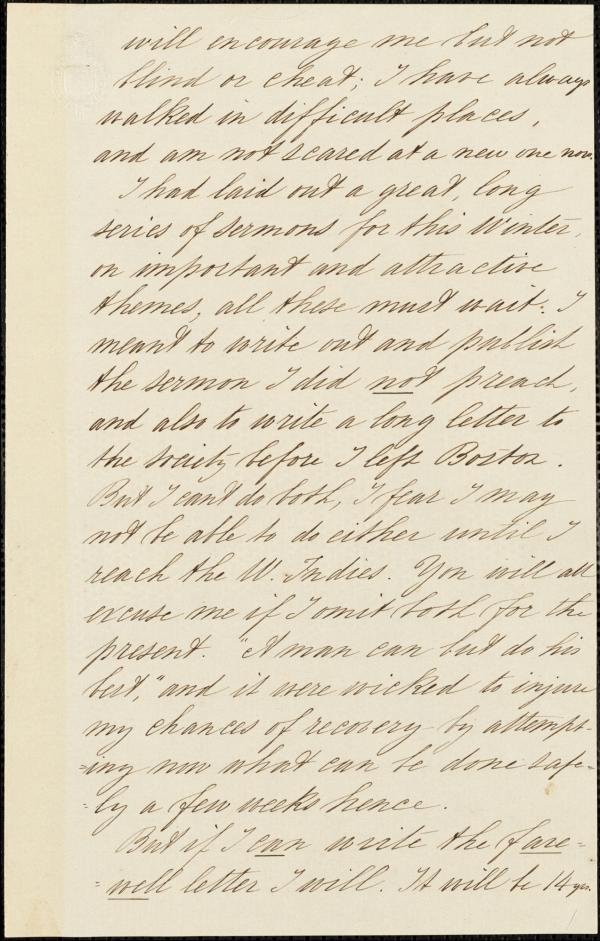 will encourage me but not
blind or cheat; I have always
walked in difficult places,
and am not scared at a new one now.
I had laid out a great, long
series of sermons for this Winter,
on important and attractive
themes, all these must wait. I
meant to write out and publish
the sermon I did not preach,
and also to write a long letter to
the society before I left Boston.
But I cant do both, I fear I may
not be able to do either until I
reach the W. Indies. You will all
excuse me if I omit both for the
present. "A man can but do his
best," and it were wicked to injure
my chances of recovery by attempt-
=ing now what can be done safe=
=ly a few weeks hence.
But if I can write the fare=
=well letter I will. It will be 14 yrs.